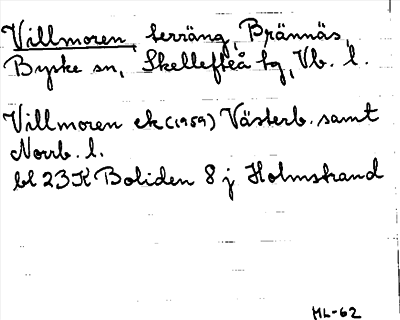 Villmoren, terräng, Brännäs,
Byske sn, Skellefteå tg, Vb. l.
Villmoren ek (1959) Västerb. samt
Norrb. l.
bl 23K Boliden 8 j Holmstrand
ML-62